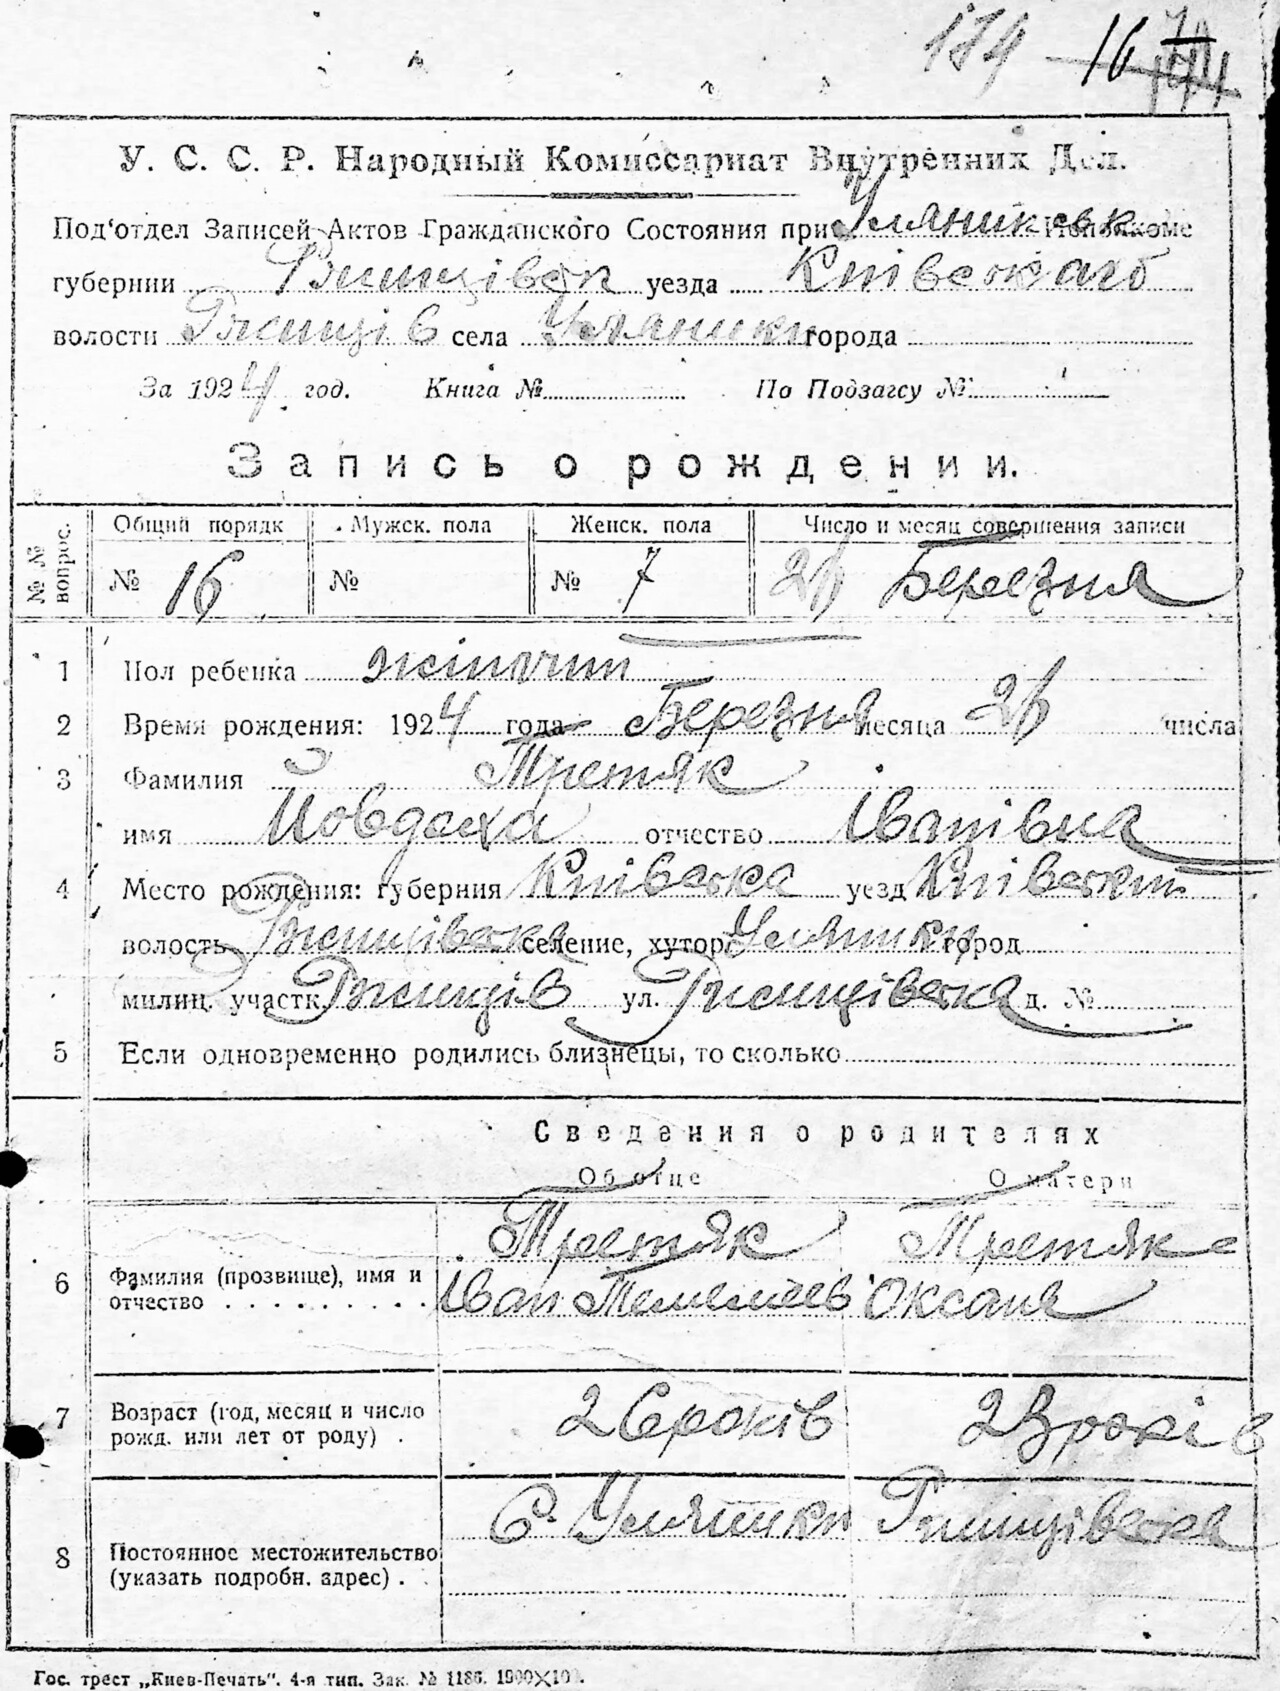 174 — 16
У. С. С. Р. Народный Комиссариат Внутренних Дел.
Под'отдел Записей Актов Гражданского Состояния при Уляниківськ Исполкоме
губернии уезда Київського
волости Ржищів села Уляники города
За 1924 год. Книга № По Подзагсу №
Запись о рождении.
№ № вопрос. Общий порядк Мужск. пола Женск. пола Число и месяц совершения записи
№ 16 № № 7 Березня
1 Пол ребенка жіночий
2 Время рождения: 1924 года Березня месяца числа
3 Фамилия Третяк
имя Йовдоха отчество Іванівна
4 Место рождения: губерния Київська уезд Київський
волость Ржищівська селение, хутор Уляники город
милиц. участк Ржищів ул. Ржищівська д. №
5 Если одновременно родились близнецы, то сколько
Сведения о родителях
Об отце О матери
6 Фамилия (прозвище), имя и отчество Третяк Третяк
Іван Оксана
7 Возраст (год, месяц и число рожд. или лет от роду) . 26 років 23 років
8 Постоянное местожительство (указать подробн. адрес) . С. Уляники Ржищівська
Гос. трест „Киев-Печать“. 4-я тип. Зак. № 1186. 1900×10